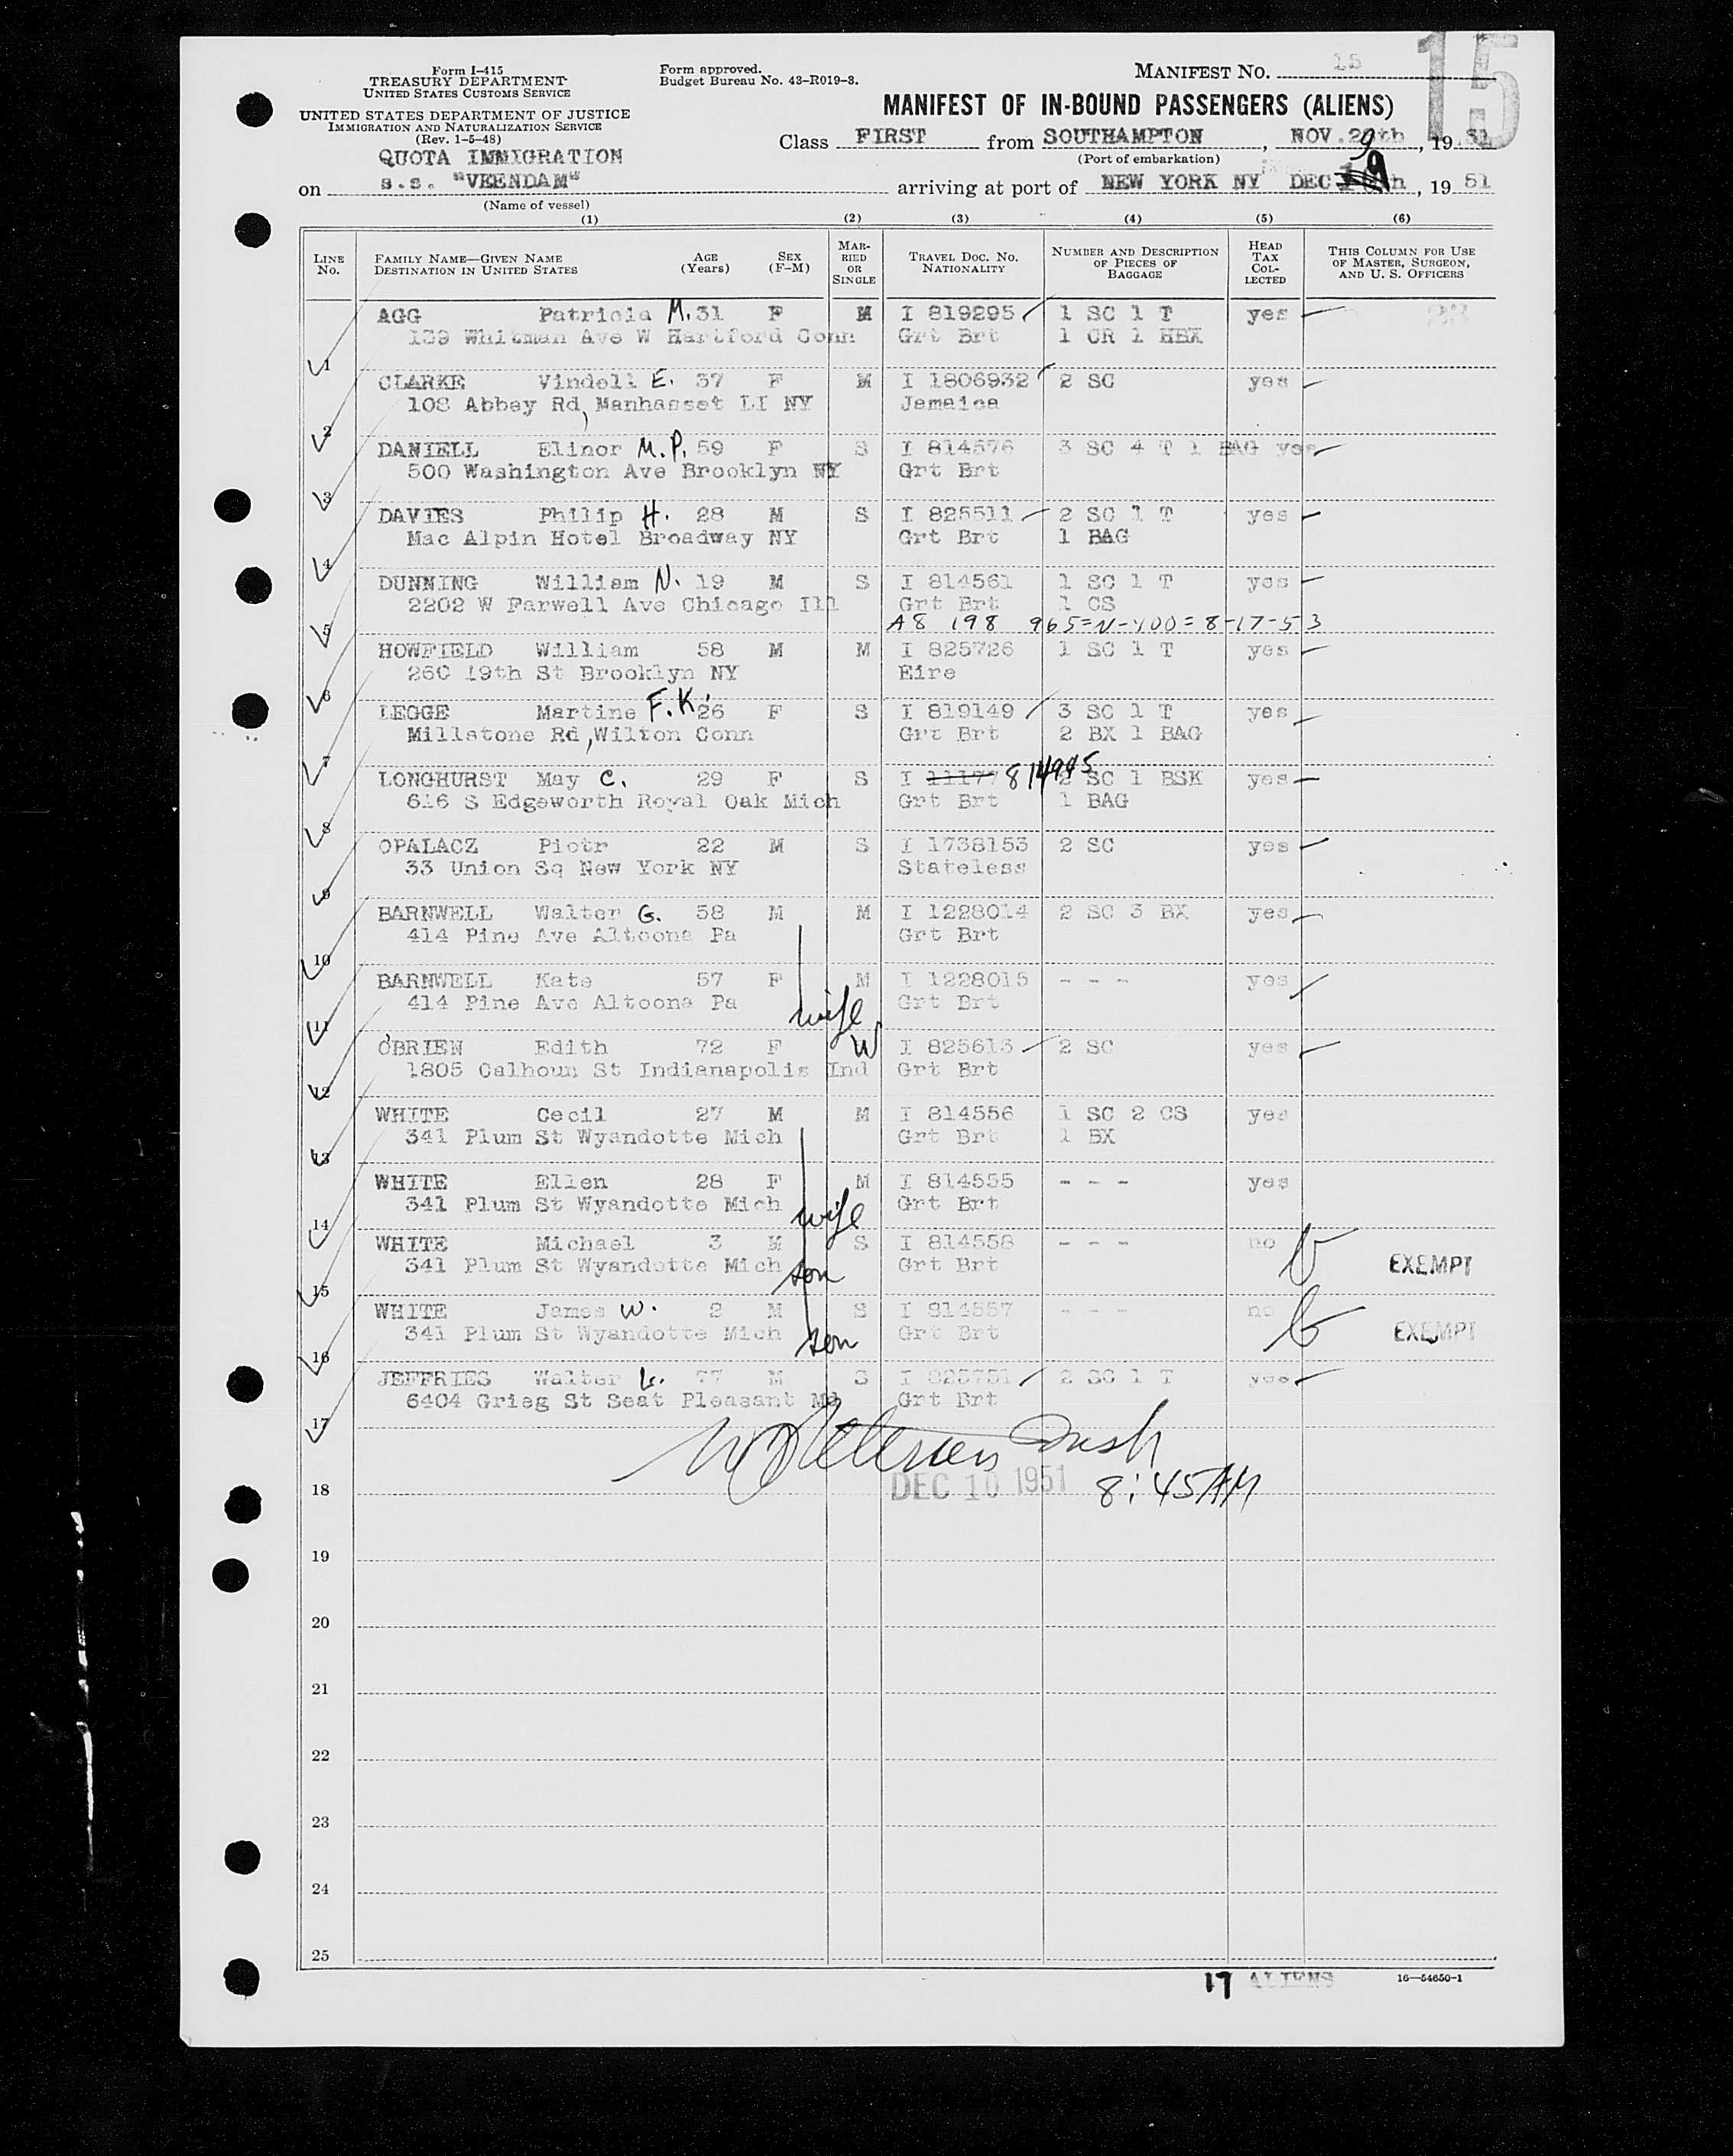 Form I-415
TREASURY DEPARTMENT
UNITED STATES CUSTOMS SERVICE
UNITED STATES DEPARTMENT OF JUSTICE
IMMIGRATION AND NATURALIZATION SERVICE
(Rev. 1-5-48)
Form approved.
Budget Bureau No. 43-R019-3.
MANIFEST NO. 15
15
MANIFEST OF IN-BOUND PASSENGERS (ALIENS)
Class FIRST from SOUTHAMPTON, NOV. 29th, 1951
(Port of embarkation)
QUOTA IMMIGRATION
on s.s. "VEENDAM" arriving at port of NEW YORK NY DEC 9, 1951
(Name of vessel)
(1) (2) (3) (4) (5) (6)
LINE NO. FAMILY NAME—GIVEN NAME DESTINATION IN UNITED STATES AGE (Years) SEX (F-M) MARRIED OR SINGLE TRAVEL DOC. NO. NATIONALITY NUMBER AND DESCRIPTION OF PIECES OF BAGGAGE HEAD TAX COLLECTED THIS COLUMN FOR USE OF MASTER, SURGEON, AND U. S. OFFICERS
AGG Patricia M. 31 F M I 819295 1 SC 1 T yes
139 Whitman Ave W Hartford Conn Grt Brt 1 CR 1 HBX
1
CLARKE Vindell E. 37 F M I 1806932 2 SC yes
108 Abbey Rd, Manhasset LI NY Jamaica
2
DANIELL Elinor M.P. 59 F S I 814576 3 SC 4 T 1 BAG yes
500 Washington Ave Brooklyn NY Grt Brt
3
DAVIES Philip H. 28 M S I 825511 2 SC 1 T yes
Mac Alpin Hotel Broadway NY Grt Brt 1 BAG
4
DUNNING William N. 19 M S I 814561 1 SC 1 T yes
2202 W Farwell Ave Chicago Ill Grt Brt 1 CS
A8 198 965=N-400=8-17-53
5
HOWFIELD William 58 M M I 825726 1 SC 1 T yes
260 19th St Brooklyn NY Eire
6
LEGGE Martine F.K. 26 F S I 819149 3 SC 1 T yes
Millstone Rd, Wilton Conn Grt Brt 2 BX 1 BAG
7
LONGHURST May C. 29 F S I 814995 2 SC 1 BSK yes
616 S Edgeworth Royal Oak Mich Grt Brt 1 BAG
8
OPALACZ Piotr 22 M S I 1738153 2 SC yes
33 Union Sq New York NY Stateless
9
BARNWELL Walter G. 58 M M I 1228014 2 SC 3 BX yes
414 Pine Ave Altoona Pa Grt Brt
10
BARNWELL Kate 57 F M I 1228015 - - - yes
414 Pine Ave Altoona Pa wife Grt Brt
11
O'BRIEN Edith 72 F W I 825613 2 SC yes
1805 Calhoun St Indianapolis Ind Grt Brt
12
WHITE Cecil 27 M M I 814556 1 SC 2 CS yes
341 Plum St Wyandotte Mich Grt Brt 1 BX
13
WHITE Ellen 28 F M I 814555 - - - yes
341 Plum St Wyandotte Mich wife Grt Brt
14
WHITE Michael 3 M S I 814558 - - - no
341 Plum St Wyandotte Mich son Grt Brt EXEMPT
15
WHITE James W. 2 M S I 814557 - - - no
341 Plum St Wyandotte Mich son Grt Brt EXEMPT
16
JEFFRIES Walter L. 77 M S I 825751 2 SC 1 T yes
6404 Grieg St Seat Pleasant Md Grt Brt
17
DEC 10 1951 8:45 AM
18
19
20
21
22
23
24
25
17 ALIENS 16—54650-1